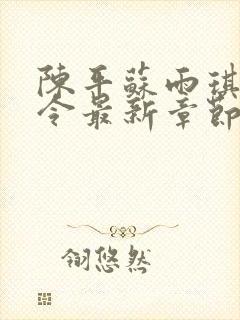 陳平蘇雨琪
令最新章節
翎悠然